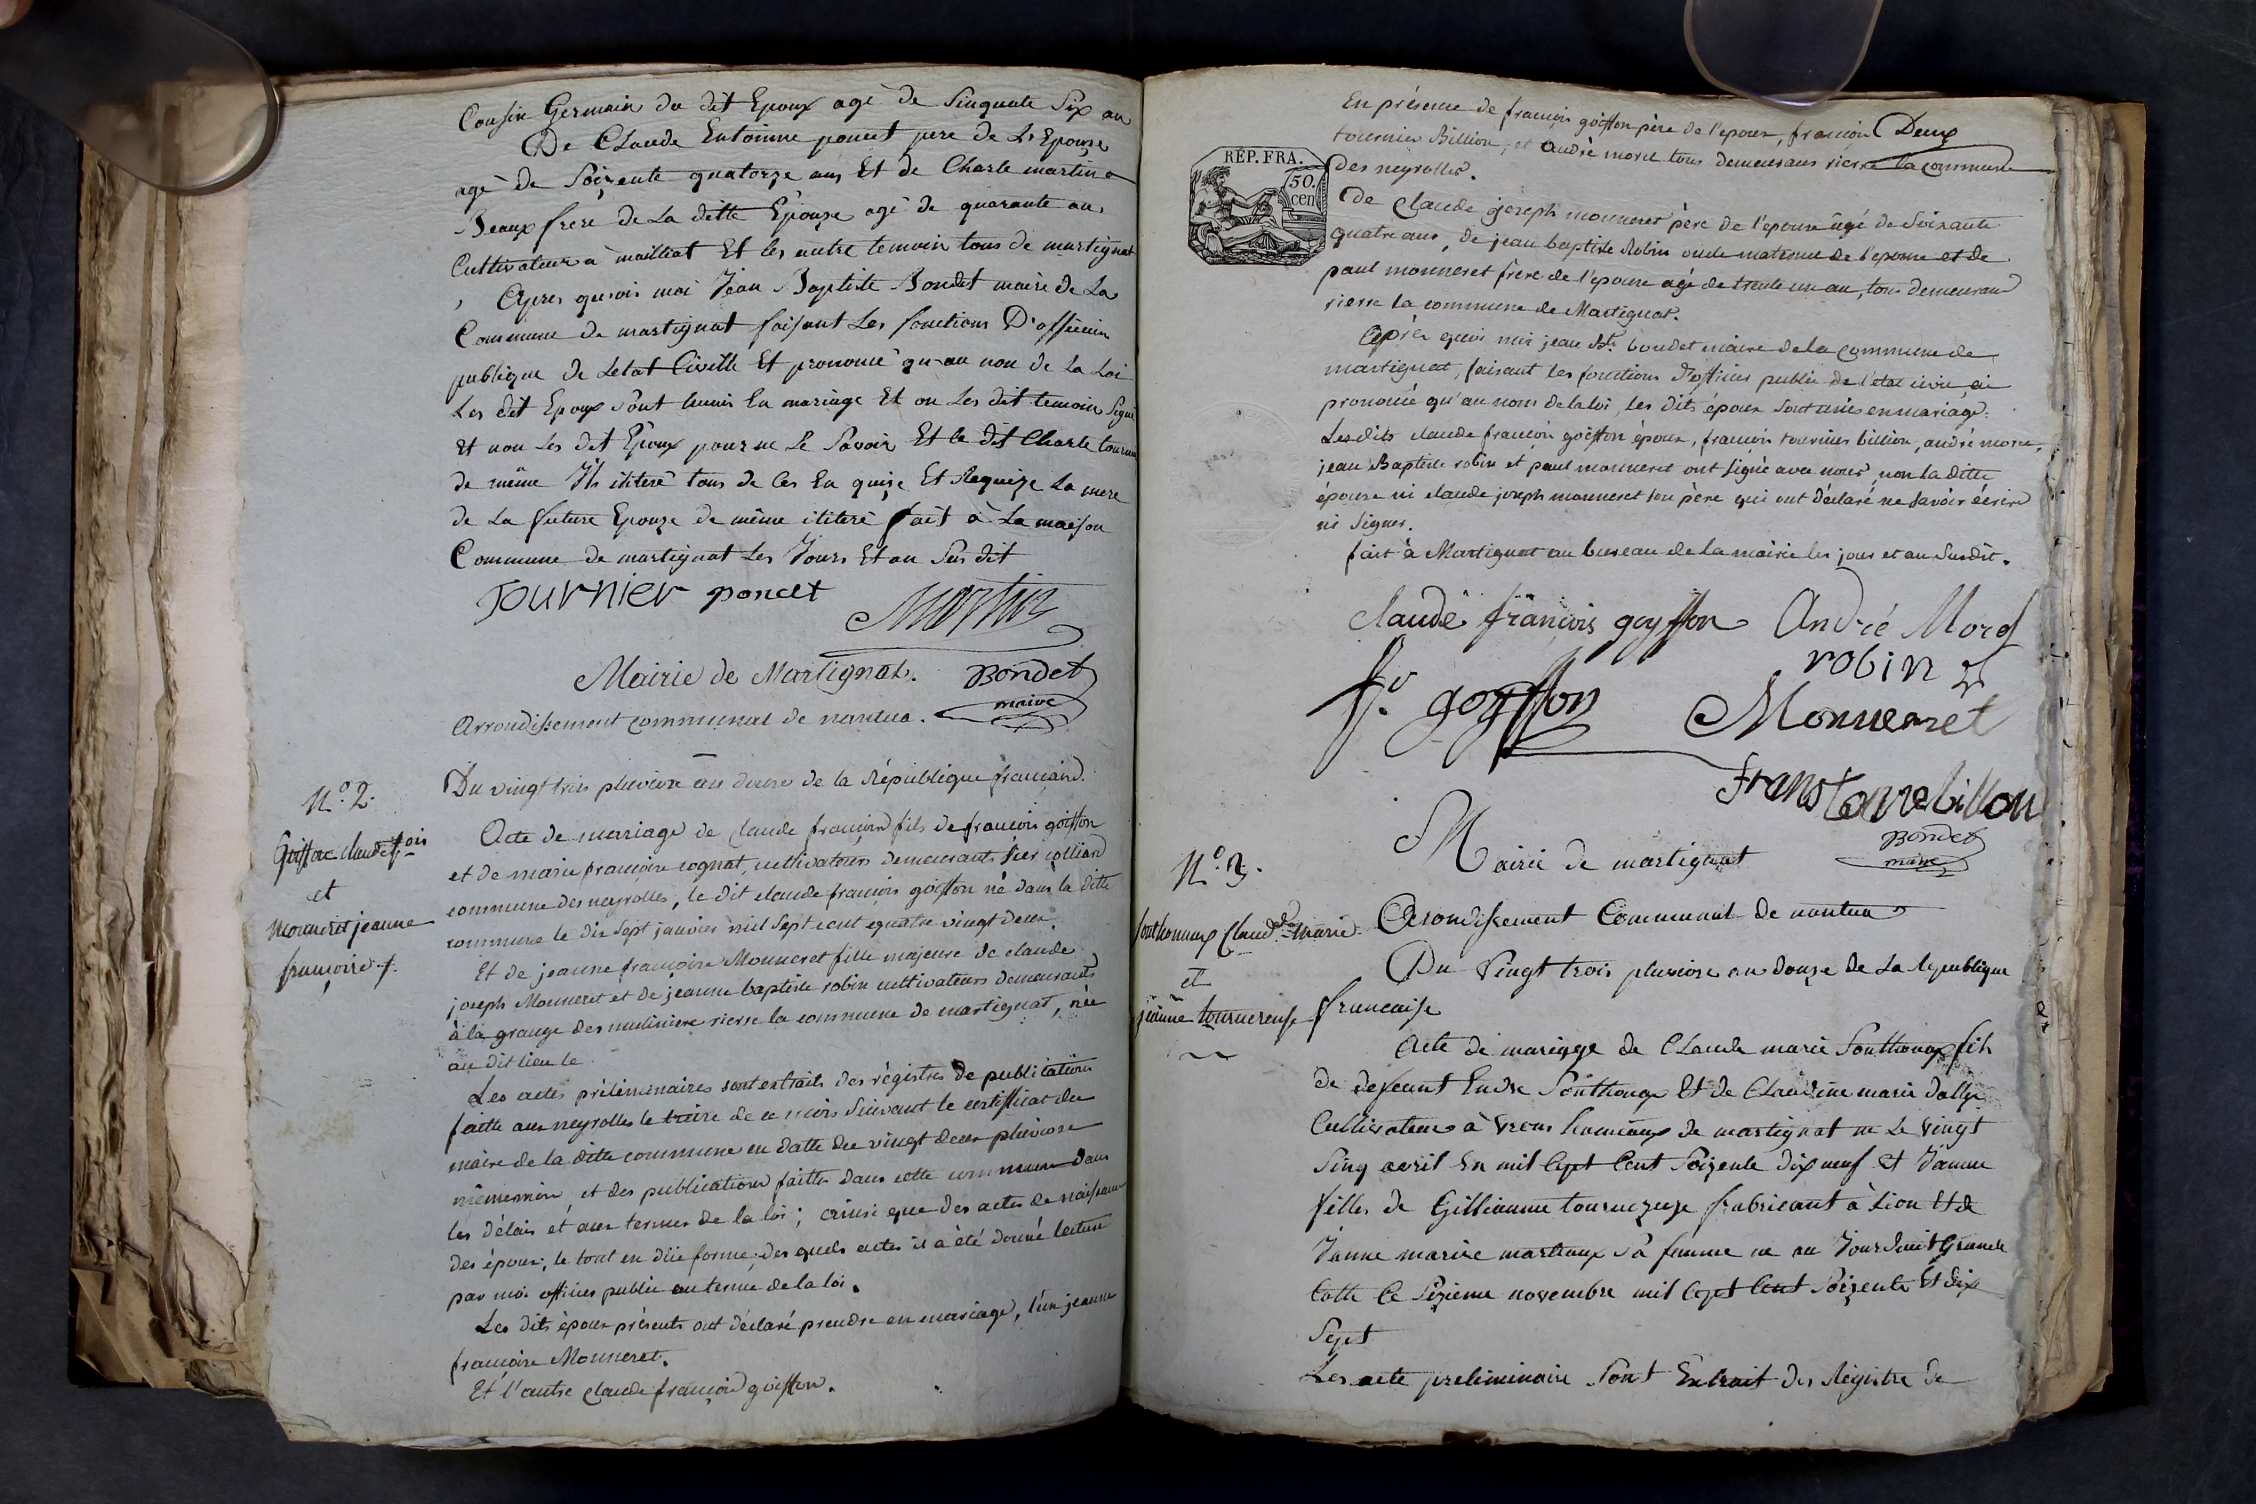 Cousin Germain du dit Epoux agé de Sinquate Six an
De CLaude Entoinne poncet pere de L'Epouze
agé de Soizente quatorze ans Et de Charle martin
Beaux frere de La ditte Epouze agé de quarante an
Cultivateur à mailliat Et les autre temoin tous de martignat
Apres quoi moi Jean Baptiste Bondet maire de La
Commune de martignat faisant Les fonctions D'officier
publique de Letat Civille Et prononcé qu-au non de La Loi
Les dit Epoux Sont hunis En mariage Et on Les dit temoin Signé
Et non Les dit Epoux pour ne Le Savoir Et le dit Charle tournier
de même Ils ititeré tous de Ces En quize Et Requize La mere
de La future Epouze de même ititeré fait à La maison
Commune de martignat Les Jours Et an Sus dit
Tournier poncet
Martin
Mairie de Martignat. Bondet
maire
Arrondissement communal de nantua.
N.º 2.
Goiffon claude f.ois
et
Monneret jeanne
françoise f.
Du vingt trois pluviose an douze de la République française.
Acte de mariage de Claude françois fils de françois goiffon
et de marie françoise cognat, cultivateurs demeurants sur colliard
commune des neyrolles, le dit claude françois goiffon né dans la ditte
commune le dix sept janvier mil sept cent quatre vingt deux.
Et de jeanne françoise Monneret fille majeure de claude
joseph Monneret et de jeanne baptiste robin cultivateurs demeurants
à la grange des muliniere rierre la commune de martignat, née
au dit lieu le
Les actes préliminaires sont extraits des régistres de publications
faitte aux neyrolles le treize de ce mois suivant le certifficat du
maire de la ditte commune en datte du vingt deux pluviose
même mois, et des publications faittes dans cette commune dans
les délais et aux termes de la loi; ainsi que des actes de naissance
des époux, le tout en düe forme; des quels actes il a été donné lecture
par moi officier public au terme de la loi.
Les dits époux présents ont déclaré prendre en mariage, l'un jeanne
françoise Monneret.
Et l'autre claude françois goiffon.
REP. FRA.
50.
cen
En présence de françois goiffon père de l'epoux, françois Deux
tournier Billion, et andré morel tous demeurans rierre la commune
des neyrolles.
De Claude joseph monneret père de l'epouse âgé de Soixante
quatre ans, de jean baptiste Robin oncle maternel de l'epouse et de
paul monneret frere de l'epouse agé de trente un an, tous demeurans
rierre la commune de Martignat.
Après quoi moi jean Bte. bondet maire de la commune de
martignat, faisant les fonctions d'officier public de l'etat civil, ai
prononcé qu'au nom de la loi, les dits époux sont unis en mariage.
Les dits claude françois goiffon époux, françois tournier billion, andré morel,
jean Baptiste robin et paul monneret ont signé avec nous, non la ditte
épouse ni claude joseph monneret son père qui ont déclaré ne savoir écrire
ni signer.
fait à Martignat au bureau de la mairie les jour et an Susdit.
claude françois goyffon André Morel
robin
fr. goyffon Monneret
frans tourre billion
Bondet
maire
Mairie de martignat
N.º 3.
Southonnax Claude Marie
et
jeanne tournereuse
Arondissement Communal de nantua
Du Vingt trois pluviose an douze de La Republique
francaise
Acte de mariage de CLaude marie Southonax fils
de defeunt Endre Southonax Et de CLaudine marie dally
Cultivateur à Vreux hameaux de martignat ne Le Vingt
Sinq avril En mil Cept Cent Soizente dix neuf Et Janne
filles de Gilliaume tournezeuze frabricant à Lion Et de
Janne mariee martiaux Sa femme ne au Jour Suit Grande
Cotte Ce Sizieme novembre mil Cept Cent Soizente Et dix
Sept
Les acte preliminaire Sont Extrait des Régistre de